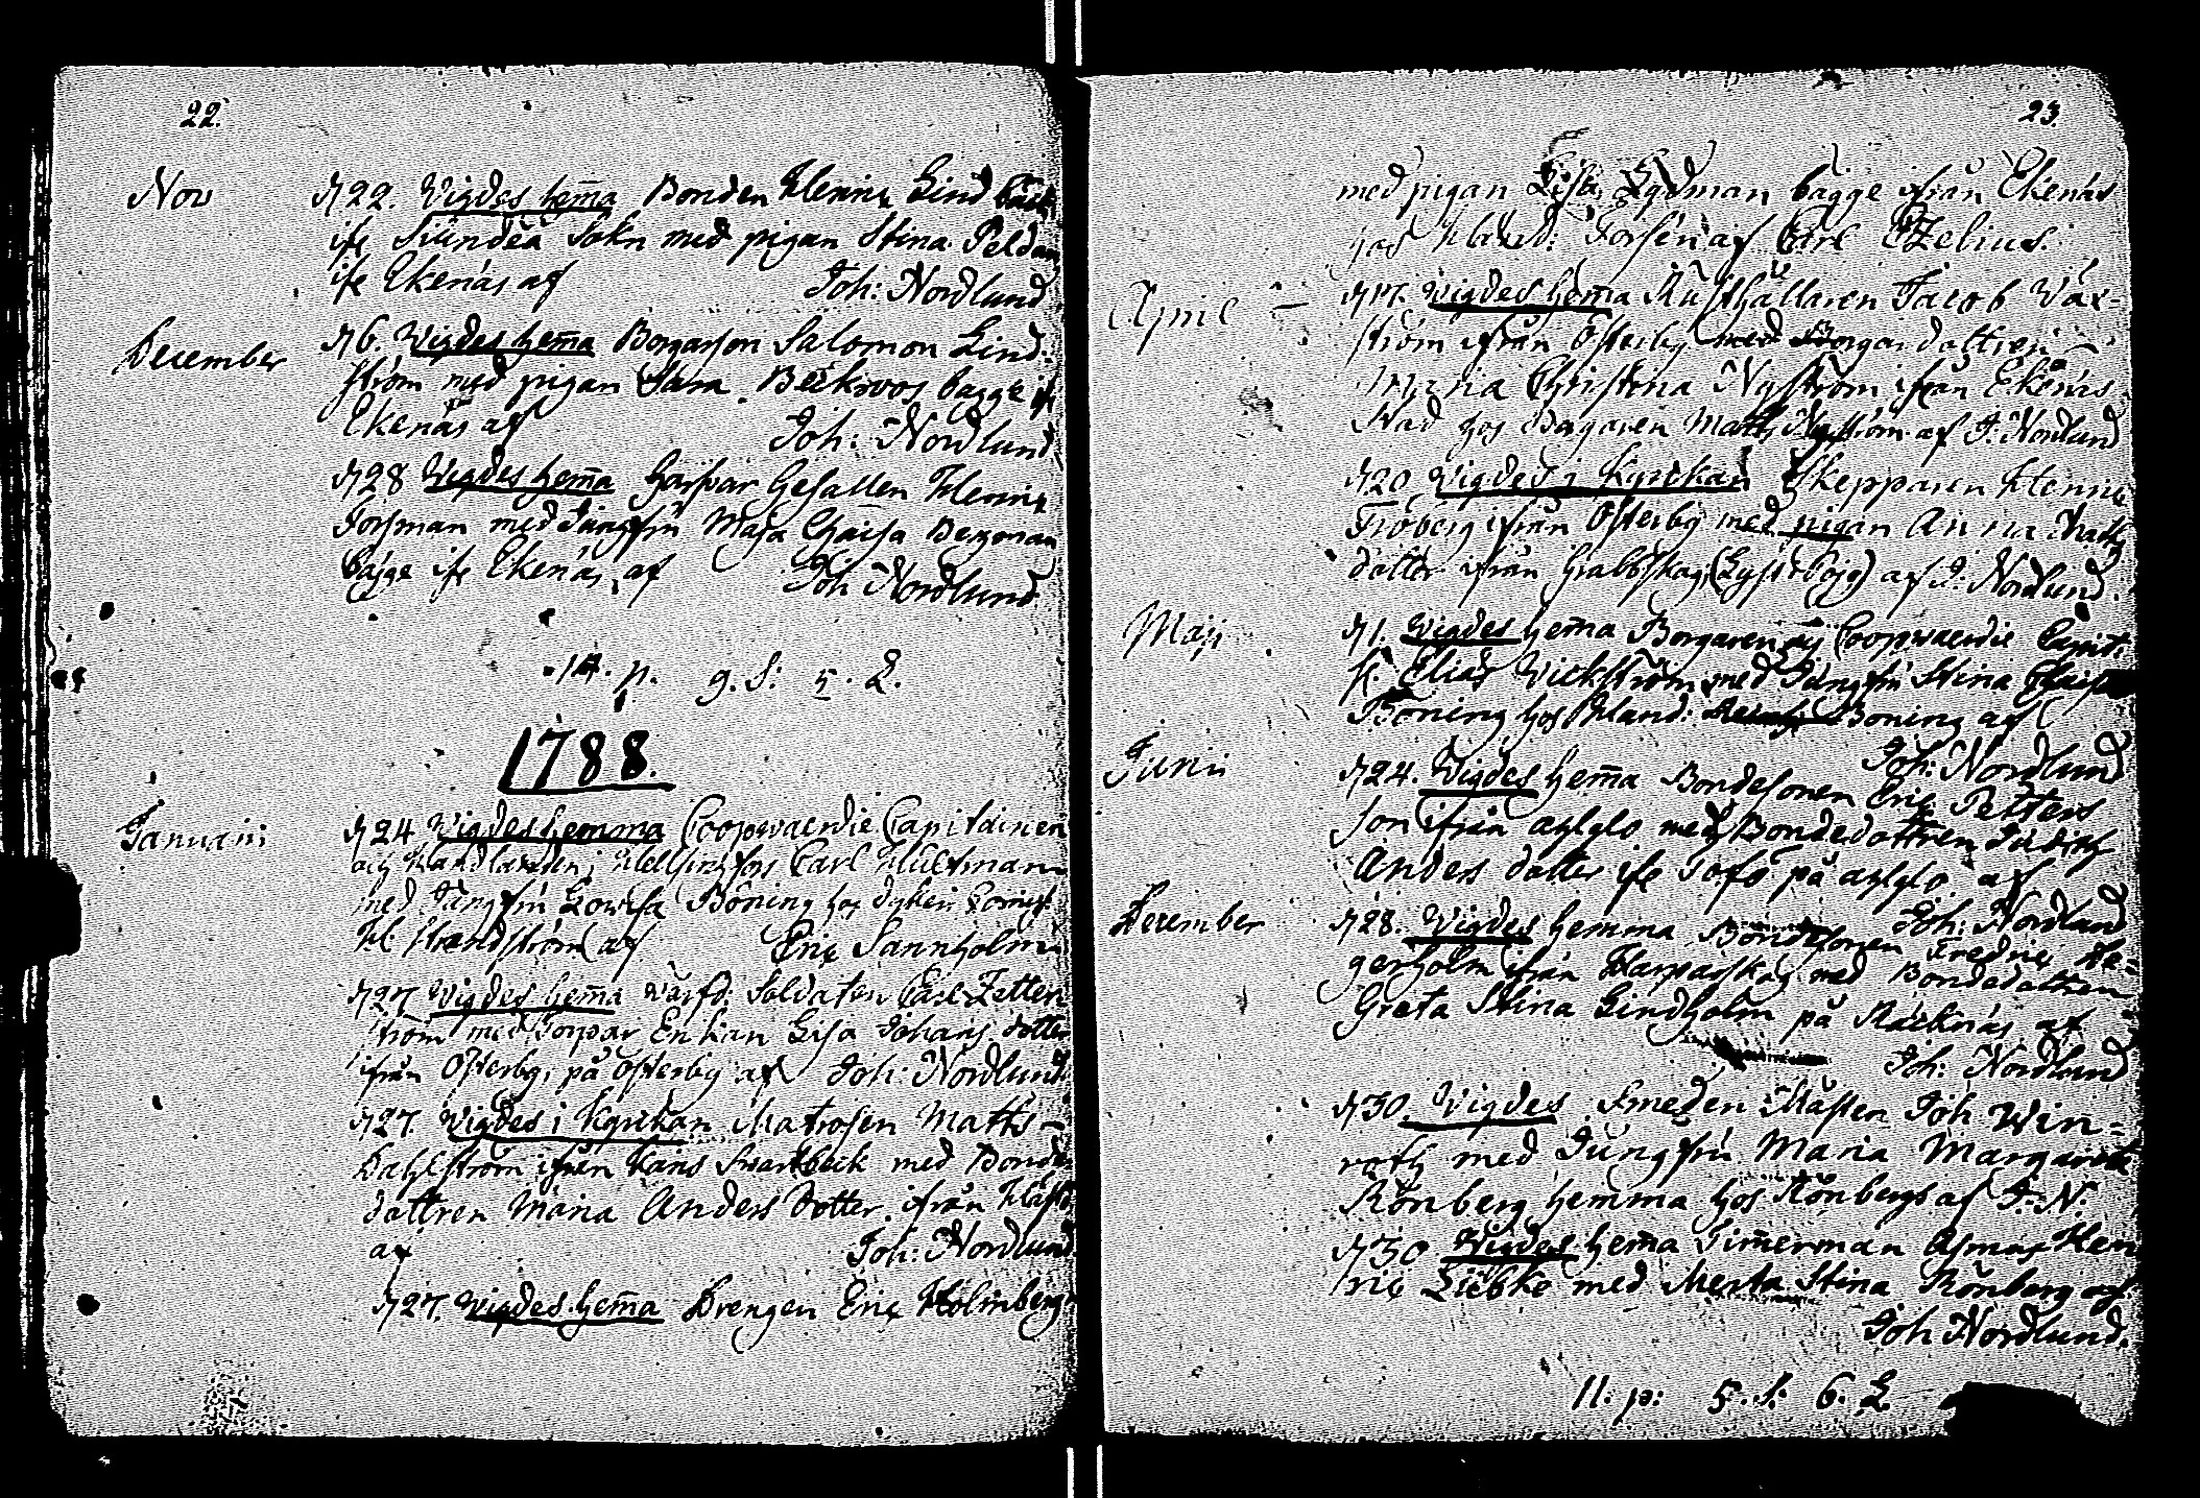 22.
Nov d 22. Wigdes hem̅a Bonden Henric Lind
ifr Siundeå Sokn med pigan Stina Peldan
ifr Ekenäs af Joh: Nordlund
December d 6. Wigdes hem̅a Borgarson Salomon Lind-
ström med pigan Sara Beckroos bagge ifr
Ekenäs af Joh: Nordlund
d 28 Wigdes hem̅a Garfvar Gesällen Henric
Forsman med Jungfru Maja Cajsa Bergman
bägge ifr Ekenäs af Joh Nordlund
14. p. 9. S: 5. L.
1788.
Januarii d 24 Wigdes hemma Coopvaerdie Capitainen
och Handlanden i Hellsingfors Carl Hultman
med Jungfru Lovisa Böning hos
Hl: Strandström af Eric Sannholm
d 27 Wigdes hem̅a Värfd: Soldaten Carl Zetter
ström med Enkan Lisa Johans dotter
ifrån Österby, på Österby af Joh: Nordlund
d 27. Wigdes i Kyrkan Matrosen Matts
Dahlström ifrån Svartbeck med Bonde
dottren Maria Anders dotter ifrån
af Joh: Nordlund
d 27. Wigdes hem̅a Drengen Eric Holmberg
23.
med pigan Lisa Lydman bägge ifrån Ekenäs
hos Forsén af Carl Ezelius.
April d 17. Wigdes hem̅a Rusthållaren Jacob Wäx-
ström ifrån Österby med Borgardottren
Maria Christina Nyström ifrån Ekenäs
Stad hos Borgaren Matts Nyström af J. Nordlund
d 20 Wigdes i Kyrckan Skepparen Henric
Fröberg ifrån Österby med pigan Anna Matts
dotter ifrån Grabbskog af J: Nordlund.
Maji d 1. Wigdes hem̅a Borgaren och Coopvaerdie Capit:
h. Elias Wickström med Jungfru Stina Cajsa
Böning hos Handl: Böning af
Joh: Nordlund
Junii d 24. Wigdes hem̅a Bondesonen Eric Petters
son ifrån älglo med Bondedottren Judith
Anders dotter ifr Tofö på älglo af
Joh: Nordlund
December d 28. Wigdes hemma Bondesonen Fredric
gerholm ifrån Harparskog med Bondedottren
Greta Stina Lindholm på Räcknäs af
Joh: Nordlund
d 30. Wigdes Smeden Mästen Joh Win-
roth med Jungfru Maria Margareta
Rönberg hemma hos Rönbergs af J: N.
d 30 Wigdes hem̅a Timerman Asmus Hen
ric Liebke med Merta Stina Rönberg af
Joh Nordlund.
11. p: 5. S: 6. L.